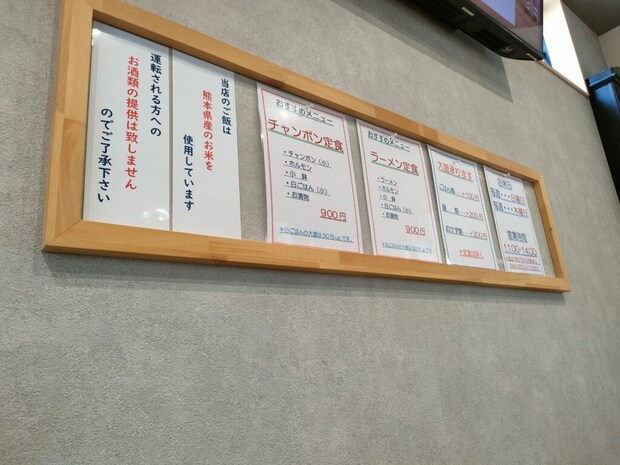 運転される方への
お酒類の提供は致しません
のでご了承下さい
当店のご飯は
熊本県産のお米を
使用しています
おすすめメニュー
チャンポン定食
・チャンポン（小）
・ホルモン
・小　鉢
・白ごはん（小）
・お漬物
900円
＊白ごはんの大盛は50円upです。
おすすめメニュー
ラーメン定食
・ラーメン
・ホルモン
・小　鉢
・白ごはん（小）
・お漬物
900円
＊白ごはんの大盛は50円upです。
大盛承ります
ごはん類
麺　類
＊定食は除く
定休日
毎週・・・日曜日
毎週・・・木曜日
営業時間
11:00-14:00